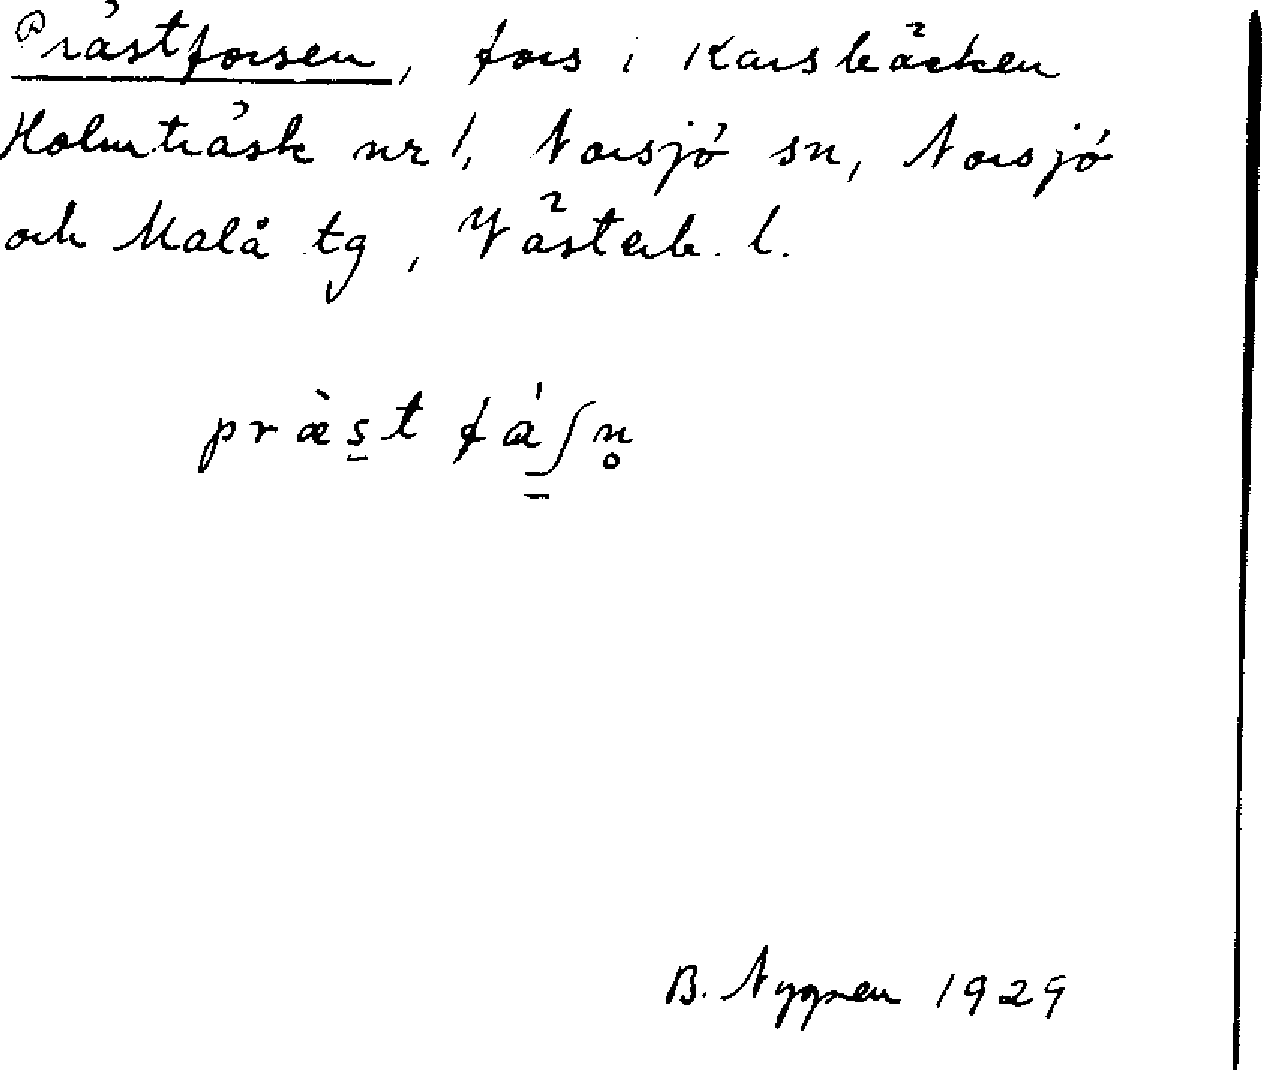 Prästforsen, fors i Karsbäcken
Holmträsk nr 1, Norsjö sn, Norsjö
och Malå tg, Västerb. l.
præ̀s̲t fá̲ʃn̥
B. Nygren 1929